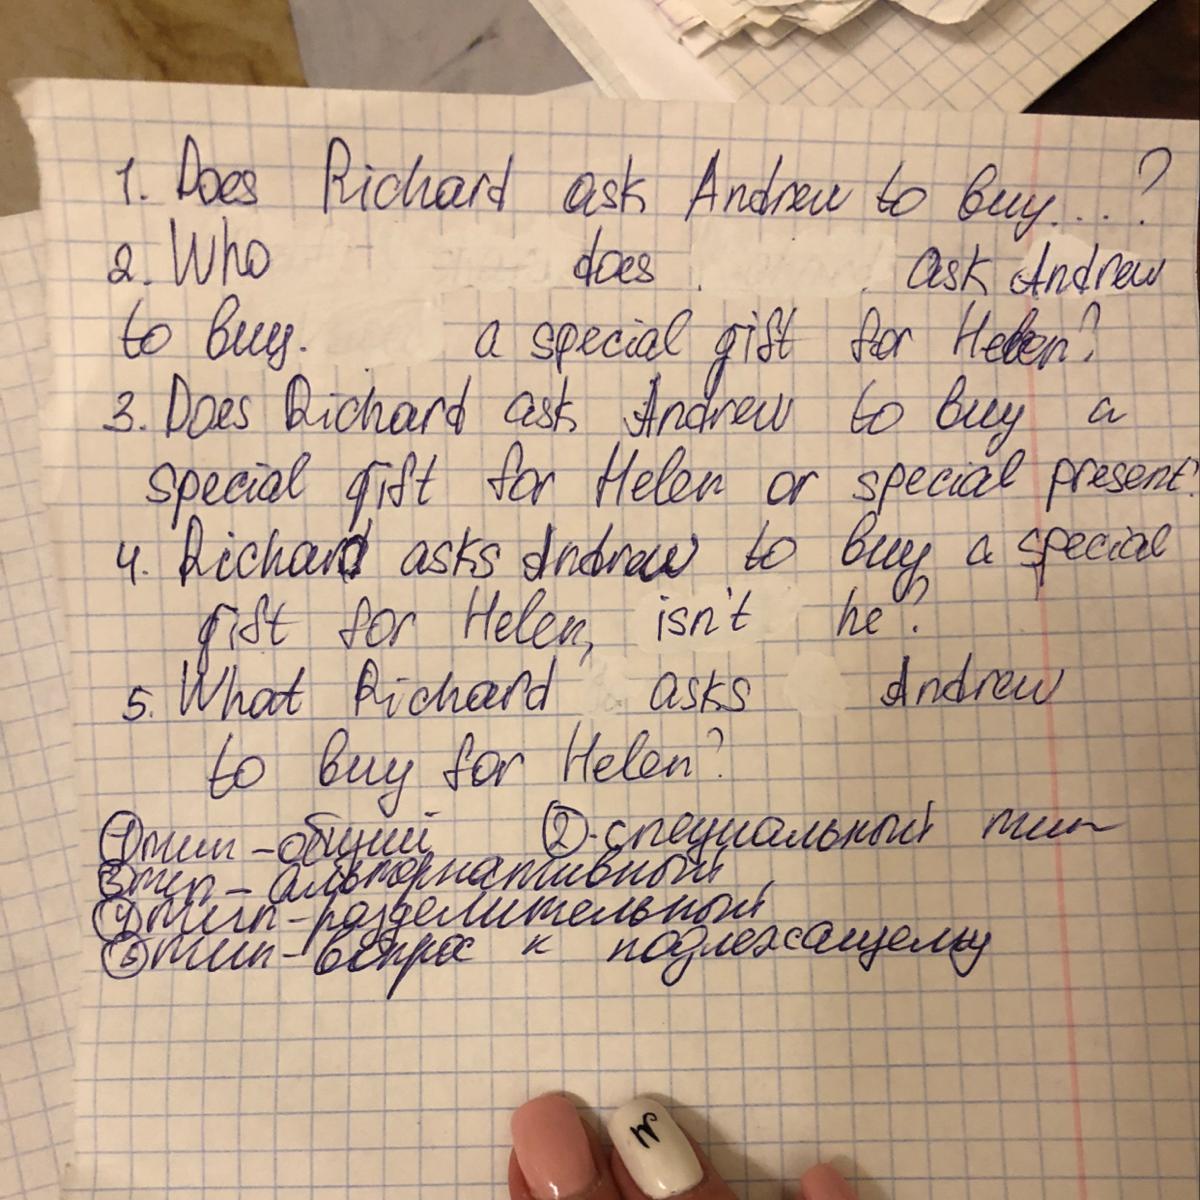 1. Does Richard ask Andrew to buy...?
2. Who does ask Andrew
to buy. a special gift for Helen?
3. Does Richard ask Andrew to buy a
special gift for Helen or special present?
4. Richard asks Andrew to buy a special
gift for Helen, isn't he?
5. What Richard asks Andrew
to buy for Helen?
① тип - общий ② - специальный тип
③ тип - альтернативный
④ тип - разделительный
⑤ тип - вопрос к подлежащему